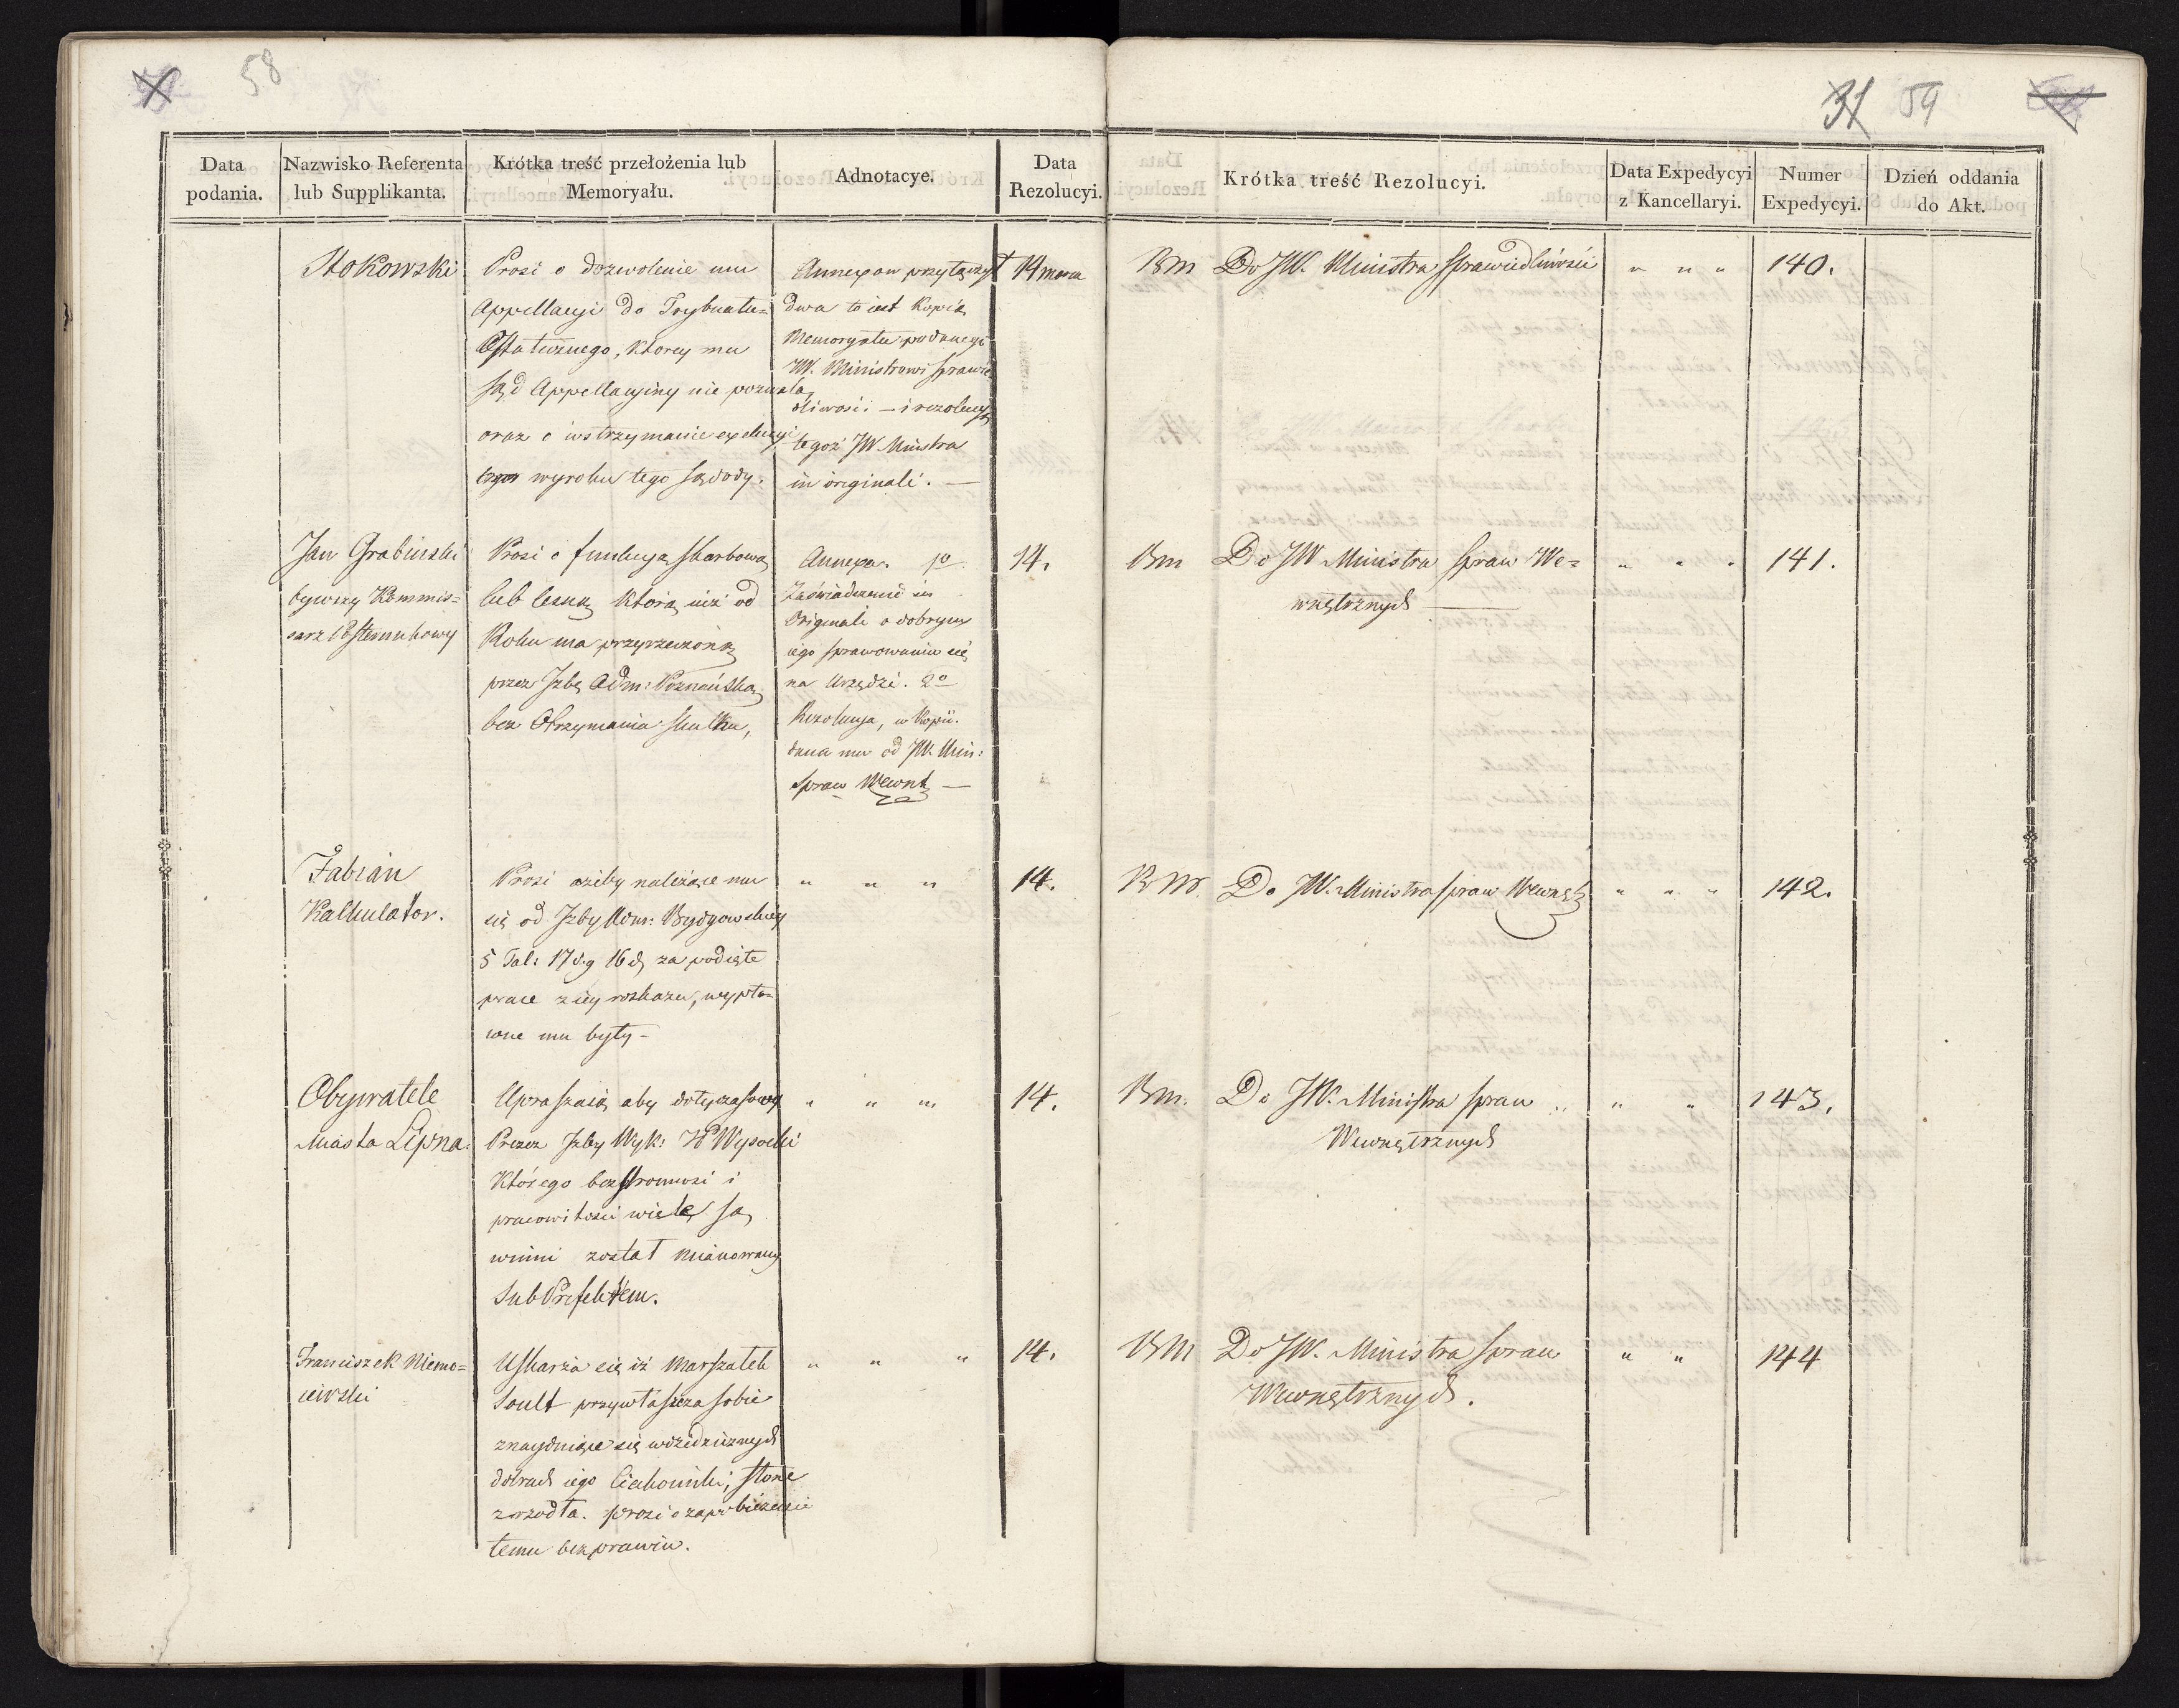 58
31 59
Data podania.
Nazwisko Referenta lub Supplikanta.
Krótka treść przełożenia lub Memoryału.
Adnotacye.
Data Rezolucyi.
Krótka treść Rezolucyi.
Data Expedycyi z Kancellaryi.
Numer Expedycyi.
Dzień oddania do Akt.
Stokowski
Prosi o dozwolenie mu
Appellacyi do Trybunału=
Ostatecznego, ktorey mu
Sąd Appellacyiny nie pozwala,
oraz o wstrzymanie exekucyi
wyroku tego Sądody.
Annexow przyłączył
dwa to iest Kopią
Memoryału podanego
JW. Ministrowi Sprawie
dliwości – i rezolucyą
tegoż JW Ministra
in originali. —
14 marca
BM
Do JW. Ministra Sprawiedliwości
" " "
140.
Jan Grabinski
bywszy Kommis=
sarz
Prosi o funkcyą Skarbową
lub Leśną którą już od
Roku ma przyrzeczoną
przez Jzbę Adm: Poznańską
bez Otrzymania skutku,
Annexa. 1o
Zaświadczenie in
Originali o dobrym
iego sprawowaniu się
na Urzędzie. 2o
Rezolucya, w Kopii.
dana mu od JW. Min:
Spraw Wewnt —
14.
Bm
Do JW Ministra Spraw We=
wnętrznych —
" " "
141.
Fabian
Kalkulator.
Prosi ażeby należące mu
się od Jzby Adm: Bydgowskiey
5 Tal: 17 dg 16 d, za podięte
prace z iey roskazu, wypła=
cone mu były –
" " "
14.
BM.
Do JW. Ministra Spraw Wewnętz
" " "
142.
Obywatele
Miasta Lipna.
Upraszaią aby dotychczasowy
Prezes Jzby Wyk: JP Wysocki
Którego bezstronności i
pracowitości wiele są
winni został mianowany
SubPrefektem.
" " "
14.
Bm.
Do JW. Ministra Spraw
Wewnętrznych
" "
143.
Franciszek Niemo=
iewski
Uskarża się iż Marszałek
Soult przywłaszcza sobie
znayduiące się w dziedzicznych
dobrach iego Ciechocinku, słone
zrzodła. prosi o zapobieżenie
temu bezprawiu.
" " "
14.
BM
Do JW. Ministra Spraw
Wewnętrznych.
" "
144